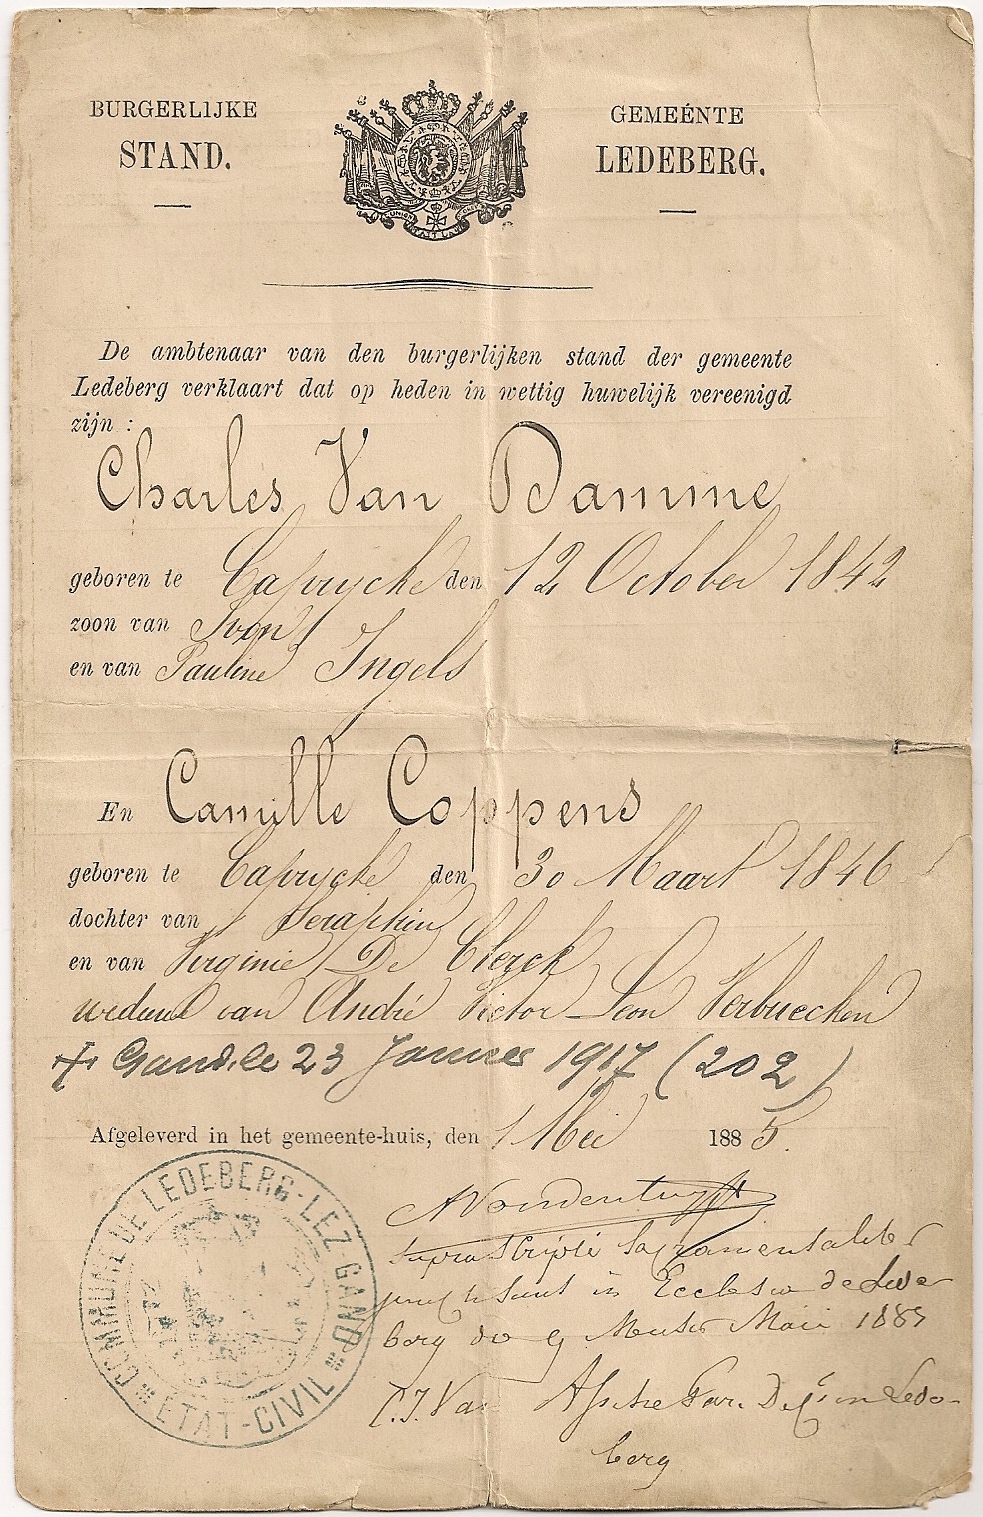 BURGERLIJKE
STAND.
GEMEÉNTE
LEDEBERG.
De ambtenaar van den burgerlijken stand der gemeente
Ledeberg verklaart dat op heden in wettig huwelijk vereenigd
zijn :
Charles Van Damme
geboren te Caprycke den 12 October 1842
zoon van Ivon
en van Pauline Ingels
En Camille Coppens
geboren te Caprycke den 30 Maart 1846
dochter van Seraphin
en van Virginie De Clerck
weduwe van André Victor Leon Verbuecken
Gand le 23 Janvier 1917 (202)
Afgeleverd in het gemeente-huis, den 1 Mei 1885.
suprascripti sacramentaliter
juncti sunt in Ecclesia de Lede
berg die Mensis Maii 1885
C.J. Van Ledeberg
COMMUNE DE LEDEBERG-LEZ-GAND
ETAT-CIVIL